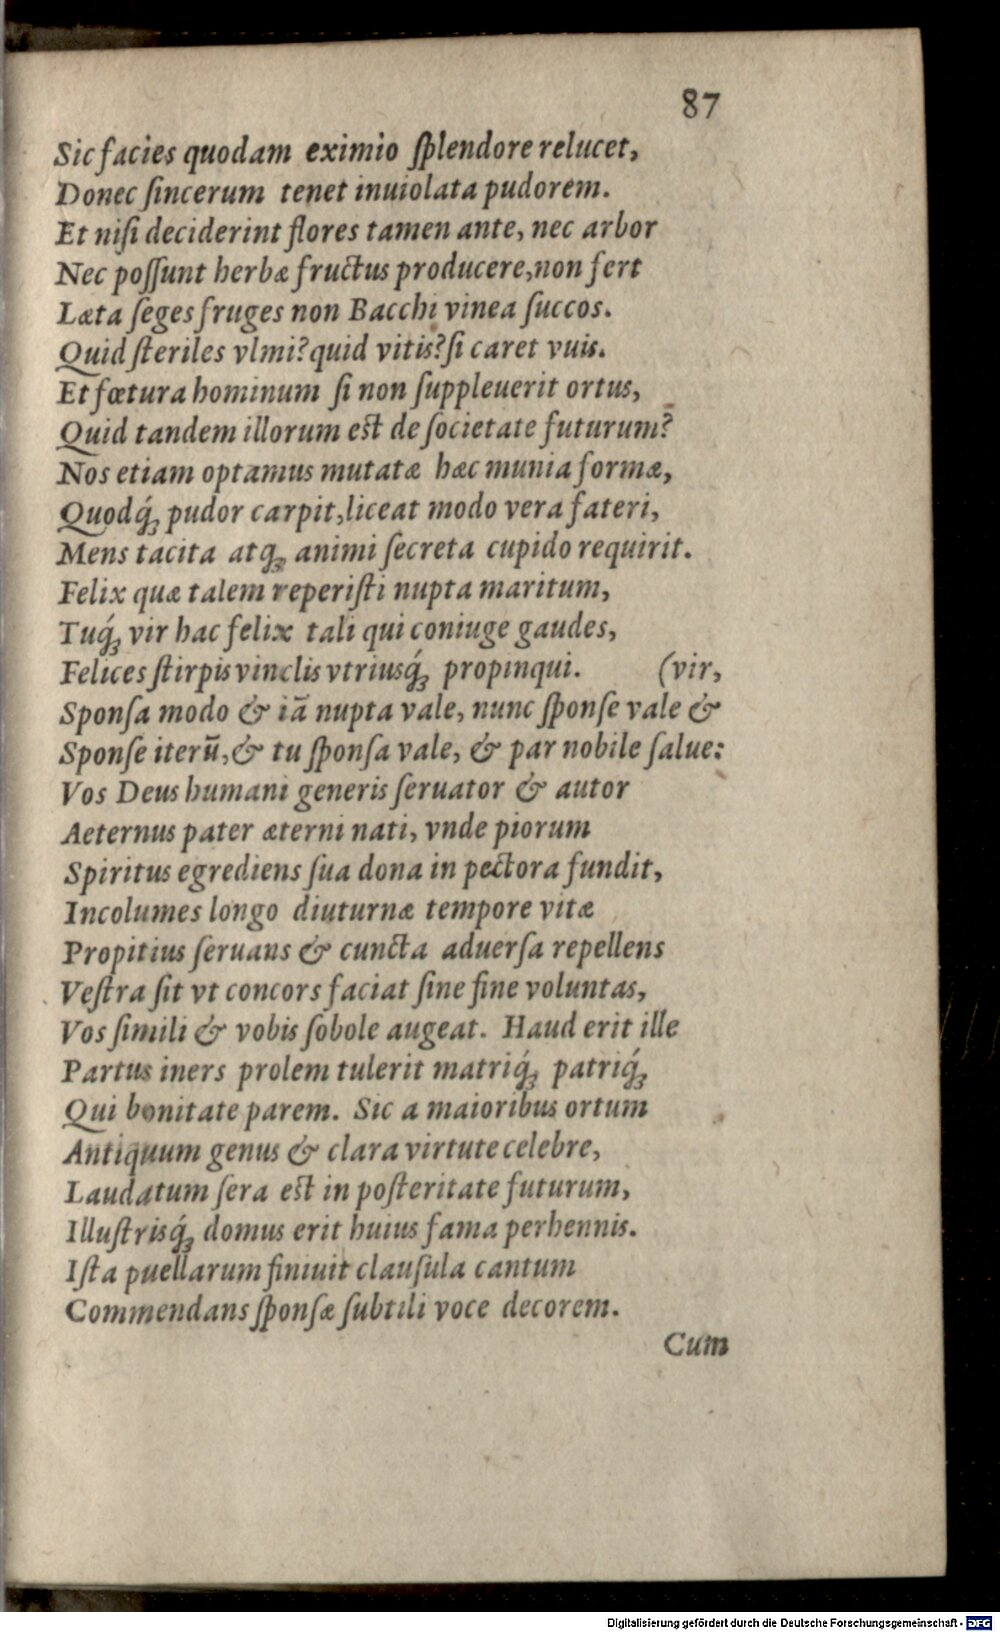 87
Sic facies quodam eximio ſplendore relucet,
Donec ſincerum tenet inuiolata pudorem.
Et niſi deciderint flores tamen ante, nec arbor
Nec poſſunt herbæ fructus producere, non fert
Læta ſeges fruges non Bacchi vinea ſuccos.
Quid ſteriles vlmi? quid vitis? ſi caret vuis.
Et fœtura hominum ſi non ſuppleuerit ortus,
Quid tandem illorum eſt de ſocietate futurum?
Nos etiam optamus mutatæ hæc munia formæ,
Quodq́ꝫ pudor carpit, liceat modo vera fateri,
Mens tacita atqꝫ animi ſecreta cupido requirit.
Felix quæ talem reperiſti nupta maritum,
Tuq́ꝫ vir hac felix tali qui coniuge gaudes,
Felices ſtirpis vinclis vtriusq́ꝫ propinqui. (vir,
Sponſa modo & iā nupta vale, nunc ſponſe vale &
Sponſe iterū, & tu ſponſa vale, & par nobile ſalue:
Vos Deus humani generis ſeruator & autor
Aeternus pater æterni nati, vnde piorum
Spiritus egrediens ſua dona in pectora fundit,
Incolumes longo diuturnæ tempore vitæ
Propitius ſeruans & cuncta aduerſa repellens
Veſtra ſit vt concors faciat ſine fine voluntas,
Vos ſimili & vobis ſobole augeat. Haud erit ille
Partus iners prolem tulerit matriq́ꝫ patriq́ꝫ
Qui bonitate parem. Sic a maioribus ortum
Antiquum genus & clara virtute celebre,
Laudatum ſera eſt in poſteritate futurum,
Illuſtrisq́ꝫ domus erit huius fama perhennis.
Iſta puellarum finiuit clauſula cantum
Commendans ſponſæ ſubtili voce decorem.
Cum
Digitalisierung gefördert durch die Deutsche Forschungsgemeinschaft - DFG